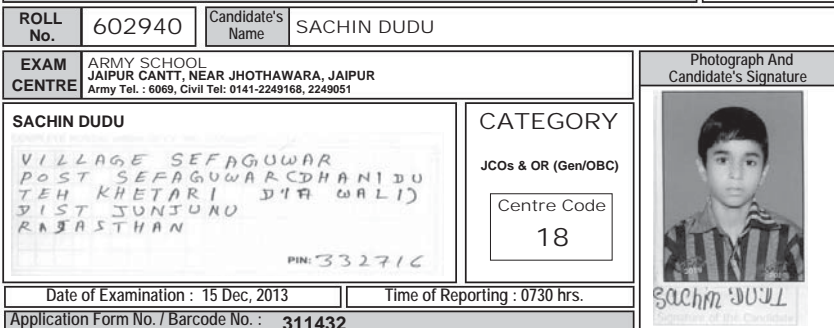 ROLL No. 602940 Candidate's Name SACHIN DUDU
EXAM CENTRE
ARMY SCHOOL
JAIPUR CANTT, NEAR JHOTHAWARA, JAIPUR
Army Tel. : 6069, Civil Tel: 0141-2249168, 2249051
Photograph And
Candidate's Signature
SACHIN DUDU
VILLAGE SEFAGUWAR
POST SEFAGUWAR(DHANIDU
TEH KHETARI WALI)
DIST JUNJUNU
RAJASTHAN
PIN: 332716
CATEGORY
JCOs & OR (Gen/OBC)
Centre Code
18
Sachin
Signature of the Candidate
Date of Examination : 15 Dec, 2013
Time of Reporting : 0730 hrs.
Application Form No. / Barcode No. : 311432